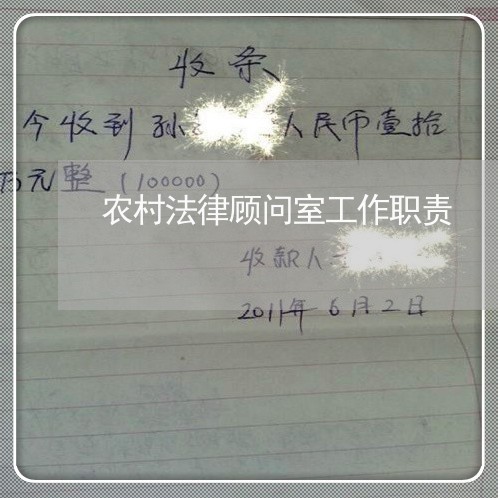 收条
今收到孙 人民币壹拾
万元整(100000)
农村法律顾问室工作职责
收款人
2011年6月2日